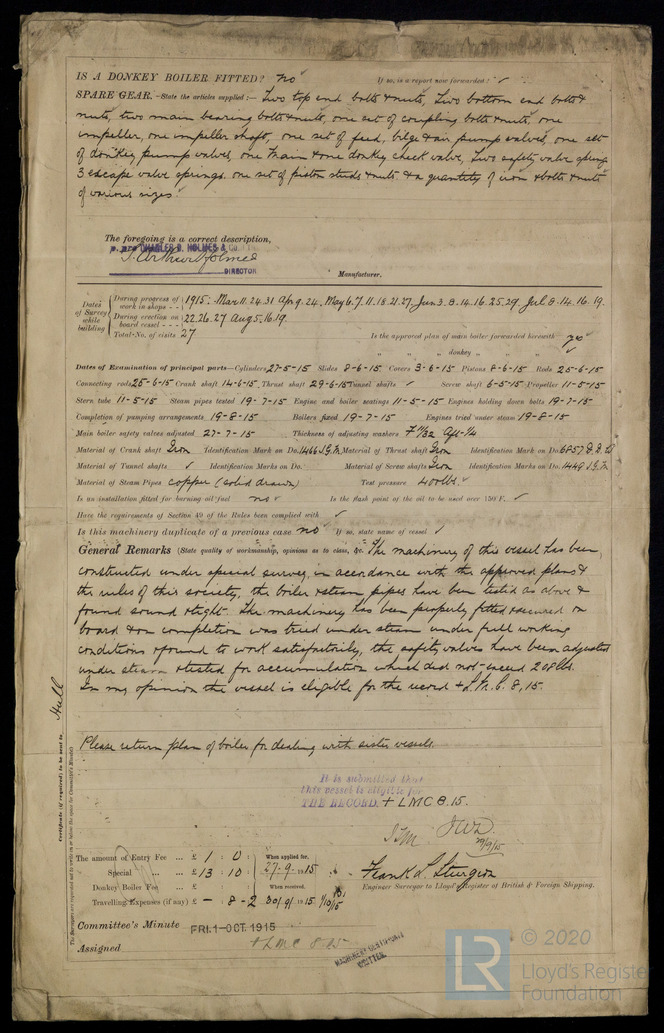 IS A DONKEY BOILER FITTED? no If so, is a report now forwarded? ✓
SPARE GEAR.—State the articles supplied:— Two top end bolts & nuts, Two bottom end bolts &
nuts, two main bearing bolts & nuts, one set of coupling bolts & nuts, one
impeller, one impeller shaft, one set of feed, bilge & air pump valves, one set
of donkey pump valves, one main & one donkey check valve, Two safety valve springs
3 escape valve springs. one set of piston studs & nuts & a quantity of iron & bolts & nuts
of various sizes.
The foregoing is a correct description,
p. pro CHARLES D. HOLMES & Co.
J. Arthur Holmes
DIRECTOR Manufacturer.
Dates of Survey while building
During progress of work in shops - - 1915: Mar 11. 24. 31 Apr 9. 24. May 6. 7. 11. 18. 21. 27. Jun 3. 8. 14. 16. 25. 29. Jul 8. 14. 16. 19.
During erection on board vessel - - - 22. 26. 27 Aug 5. 16. 19.
Total No. of visits 27 Is the approved plan of main boiler forwarded herewith yes
" " " donkey " " " ✓
Dates of Examination of principal parts—Cylinders 27-5-15 Slides 8-6-15 Covers 3-6-15 Pistons 8-6-15 Rods 25-6-15
Connecting rods 25-6-15 Crank shaft 14-6-15 Thrust shaft 29-6-15 Tunnel shafts ✓ Screw shaft 6-5-15 Propeller 11-5-15
Stern tube 11-5-15 Steam pipes tested 19-7-15 Engine and boiler seatings 11-5-15 Engines holding down bolts 19-7-15
Completion of pumping arrangements 19-8-15 Boilers fixed 19-7-15 Engines tried under steam 19-8-15
Main boiler safety valves adjusted 27-7-15 Thickness of adjusting washers F 11/32 Aft 1/4
Material of Crank shaft Iron Identification Mark on Do. 1466 J.G.M. Material of Thrust shaft Iron Identification Mark on Do. 6857
Material of Tunnel shafts ✓ Identification Marks on Do. Material of Screw shafts Iron Identification Marks on Do. 1449 J.G.M.
Material of Steam Pipes copper (solid drawn) Test pressure 400 lbs. ✓
Is an installation fitted for burning oil fuel no ✓ Is the flash point of the oil to be used over 150°F. ✓
Have the requirements of Section 49 of the Rules been complied with ✓
Is this machinery duplicate of a previous case no ✓ If so, state name of vessel ✓
General Remarks (State quality of workmanship, opinions as to class, &c. The machinery of this vessel has been
constructed under special survey, in accordance with the approved plans &
the rules of this society, the boiler & steam pipes have been tested as above &
found sound & tight. The machinery has been properly fitted & secured on
board & on completion was tried under steam under full working
conditions & found to work satisfactorily, the safety valves have been adjusted
under steam & tested for accumulation which did not exceed 208 lbs.
In my opinion the vessel is eligible for the record + L.M.C. 8,15.
Please return plan of boiler for dealing with sister vessels.
It is submitted that
this vessel is eligible for
THE RECORD. + LMC 8.15.
The amount of Entry Fee ... £ 1 : 0 : When applied for,
Special ... £ 13 : 10 : 27-9-1915
Donkey Boiler Fee ... £ When received,
Travelling Expenses (if any) £ – : 8 - 2 30/9/1915 1/10/15
Frank L. Sturgeon
Engineer Surveyor to Lloyd's Register of British & Foreign Shipping.
Committee's Minute FRI. 1-OCT. 1915
Assigned + LMC 8.15
MACHINERY CERTIFICATE
WRITTEN.
Certificate (if required) to be sent to Hull
LR © 2020
Lloyd's Register
Foundation